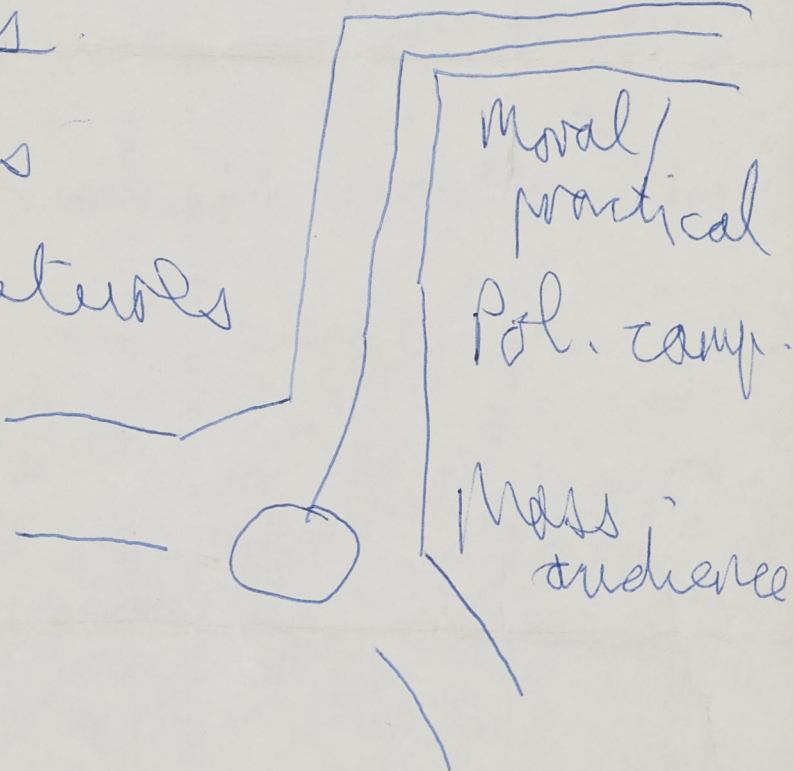 Moral/
practical
Pol. camp.
Mass
audience